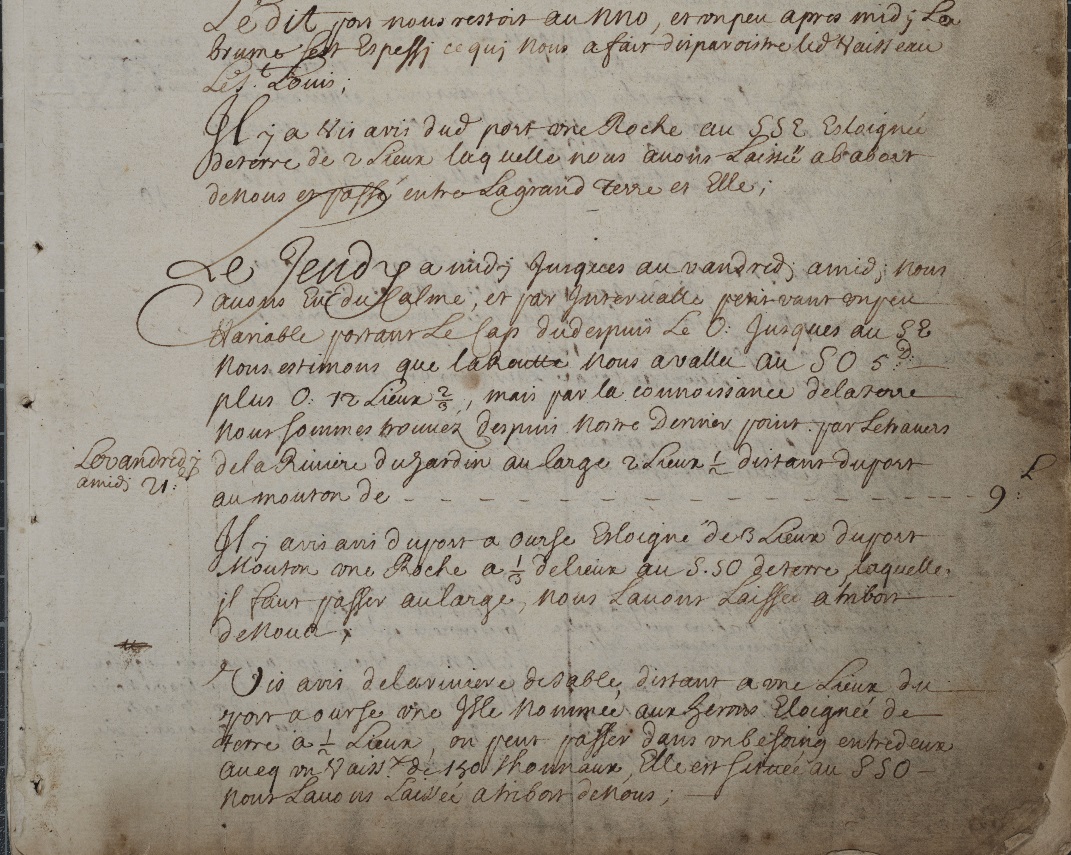 Le dit port nous restoit au NNO, et un peu apres midj La
brume sest Espessj ce quj Nous a fait disparoistre led Vaisseau
Le St. Louis;
Il y a Vis avis dud port une Roche au SSE Esloignée
de terre de 2 Lieux laquelle nous auons Laissée a babort
de Nous et passé entre La grand Terre et Elle;
Le Jeudy a midj Jusques au vandredj amidj Nous
auons Eu du Calme, et par Intervalle petit vant un peu
Variable portant Le Cap dud despuis Le O: Jusques au SE
Nous estimons que la Routte Nous a vallu au SO 5 D:
plus O: 12 Lieux 2/3, mais par la connoissance de la terre
Nous sommes trouvez despuis Nostre Dernier point par Le travers
Le vandredj
amidj 21:
de la Riviere du Jardin au large 2 Lieux 1/2 distant du port
au mouton de - - - - - - - - - - - - - - - - 9 L:
Il y avis avis du port a ourse Esloigné de 3 Lieux du port
Mouton une Roche a 1/3 de lieux au S.SO de terre, laquelle
il faut passer au large, Nous Lauons Laissée a tribort
de Nous;
Vis avis de la riviere de Sable, distant a une Lieux du
port a ourse une Isle Nommée aux herons Eloignée de
terre a 1/2 Lieux, on peut passer dans un besoing entre deux
aueq un Vaissx de 150 thonnaux, Elle est Situee au SSO
Nous Lauons Laissée a tribort de Nous;